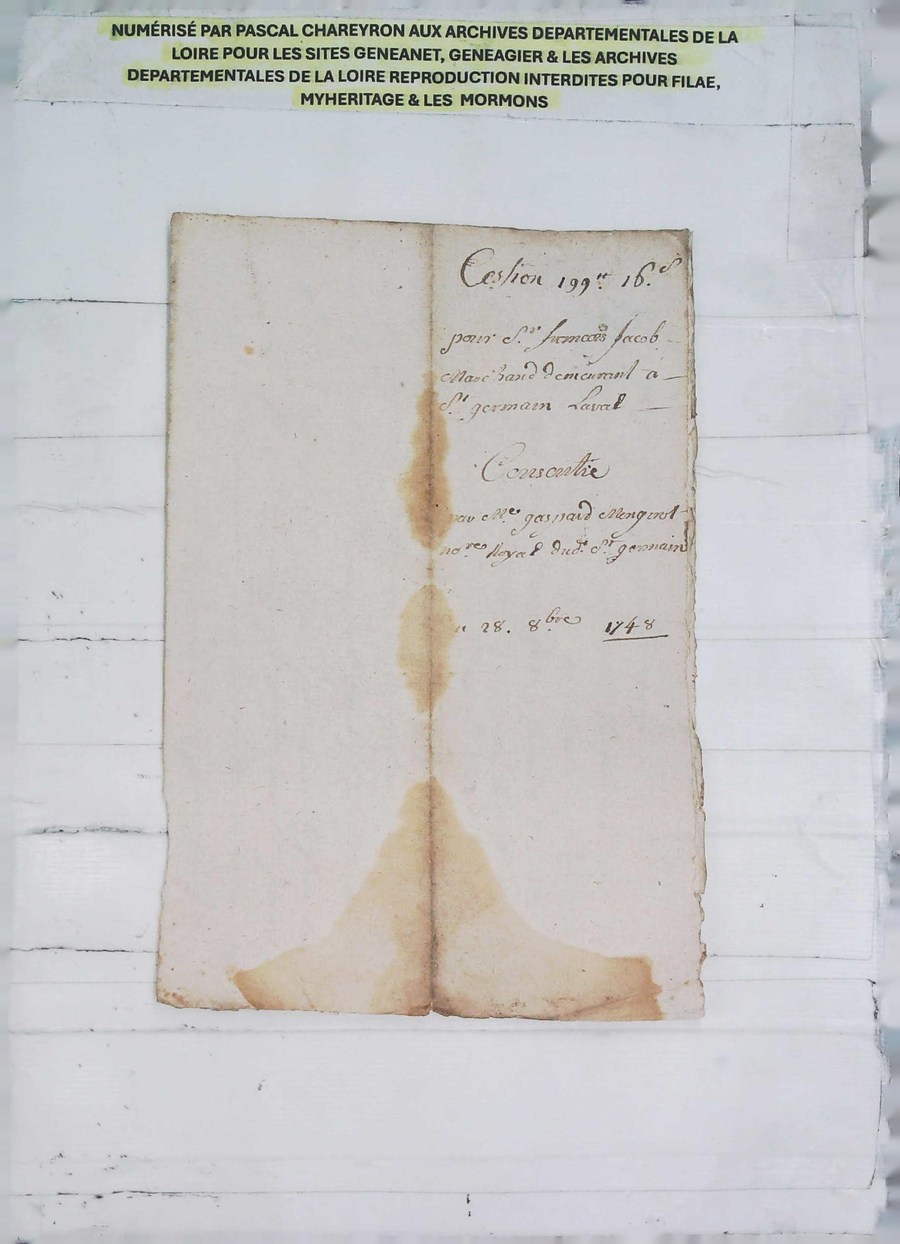 NUMÉRISÉ PAR PASCAL CHAREYRON AUX ARCHIVES DEPARTEMENTALES DE LA
LOIRE POUR LES SITES GENEANET, GENEAGIER & LES ARCHIVES
DEPARTEMENTALES DE LA LOIRE REPRODUCTION INTERDITES POUR FILAE,
MYHERITAGE & LES MORMONS
Cession 199tt 16.s
pour S.r francois Jacob
Marchand demeurant a
S.t germain Laval
Consentie
par Me gaspard
no.re Royal dud.t S.t germain
28. 8.bre 1748